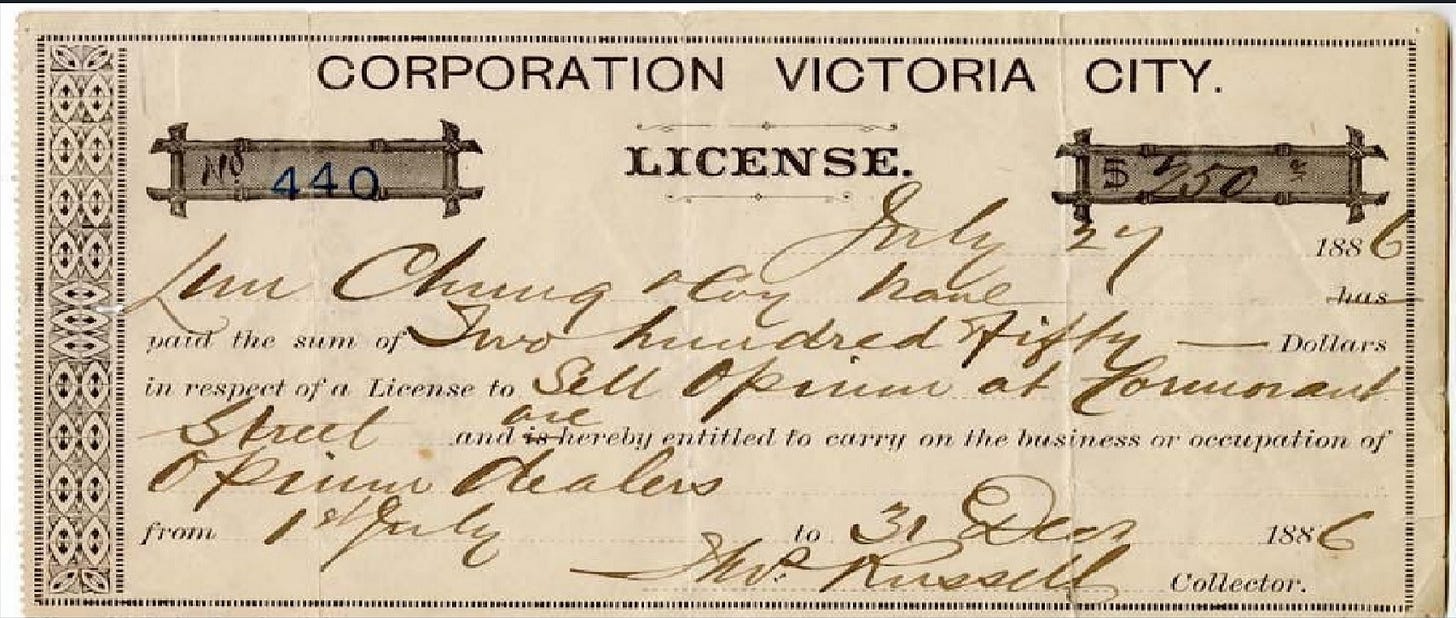 CORPORATION VICTORIA CITY.
No 440 LICENSE. $ 250
July 27 1886
Chung & Coy have has
paid the sum of Two hundred Fifty — Dollars
in respect of a License to Sell Opium at Cormorant
Street and is are hereby entitled to carry on the business or occupation of
Opium dealers
from 1st July to 31 Decr 1886
Thos. Russell Collector.